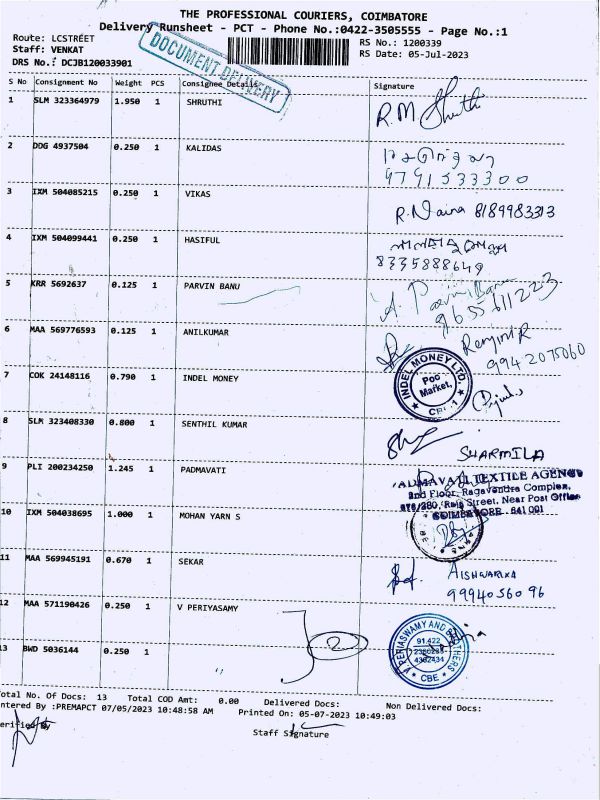 THE PROFESSIONAL COURIERS, COIMBATORE
Delivery Runsheet - PCT - Phone No.:0422-3505555 - Page No.:1
Route: LCSTREET
RS No.: 1200339
Staff: VENKAT
RS Date: 05-Jul-2023
DRS No.: DCJB120033901
DOCUMENT DELIVERY
S No Consignment No Weight PCS Consignee Details Signature
1 SLM 323364979 1.950 1 SHRUTHI R.M. Shruthi
2 DDG 4937504 0.250 1 KALIDAS
4791533300
3 IXM 504085215 0.250 1 VIKAS R. Naina 8189983313
4 IXM 504099441 0.250 1 HASIFUL
8335888649
5 KRR 5692637 0.125 1 PARVIN BANU
9655611223
6 MAA 569776593 0.125 1 ANILKUMAR
9942075060
7 COK 24148116 0.790 1 INDEL MONEY
INDEL MONEY LTD.
Poo
Market,
8 SLK 323408330 0.800 1 SENTHIL KUMAR
SHARMILA
9 PLI 200234250 1.245 1 PADMAVATI
ADMAVATI TEXTILE AGENCY
2nd Floor, Ragavendra Complex,
Raja Street, Near Post Office
COIMBATORE - 641 001
10 IXM 504038695 1.000 1 MOHAN YARN S
11 MAA 569945191 0.670 1 SEKAR AISHWARYA
9994056096
12 MAA 571190426 0.250 1 V PERIYASAMY
13 BWD 5036144 0.250 1 ,,
2
PERIASWAMY AND BROTHERS
CBE
Total No. Of Docs: 13 Total COD Amt: 0.00 Delivered Docs: Non Delivered Docs:
Entered By :PREMAPCT 07/05/2023 10:48:58 AM Printed On: 05-07-2023 10:49:03
Verified By
Staff Signature